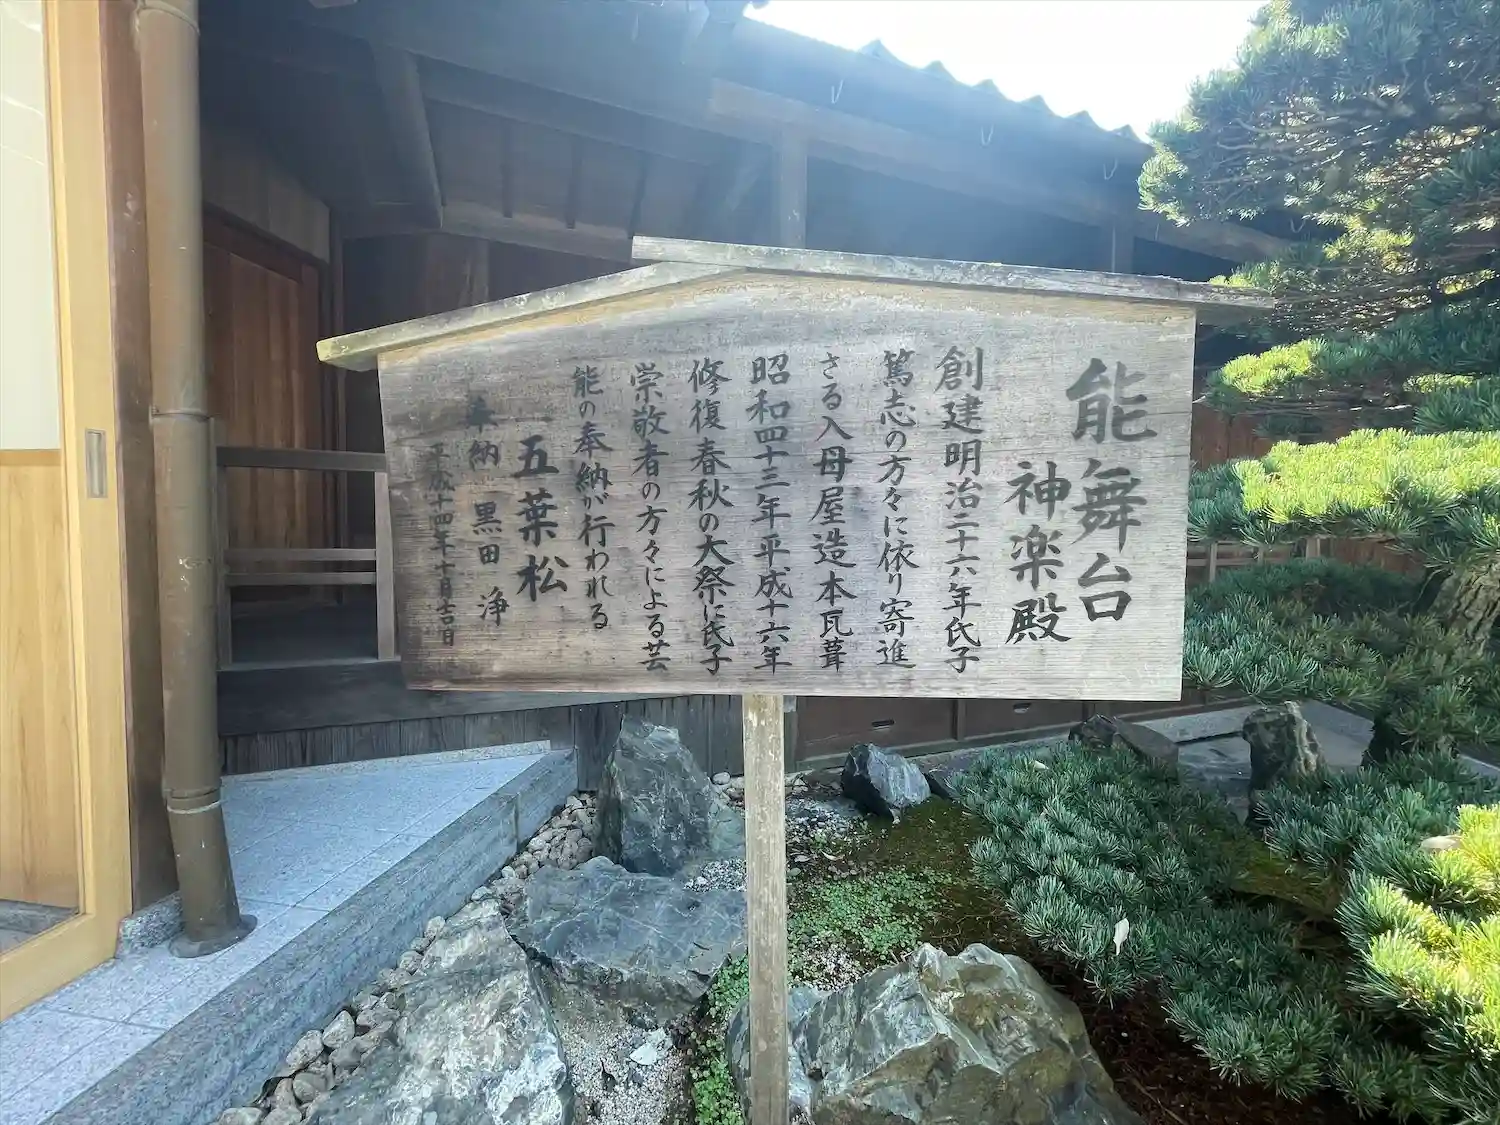 能舞台
神楽殿
創建明治二十六年氏子
篤志の方々に依り寄進
さる入母屋造本瓦葺
昭和四十三年平成十六年
修復春秋の大祭に氏子
崇敬者の方々による芸
能の奉納が行われる
五葉松
奉納 黒田 浄
平成十四年十月吉日